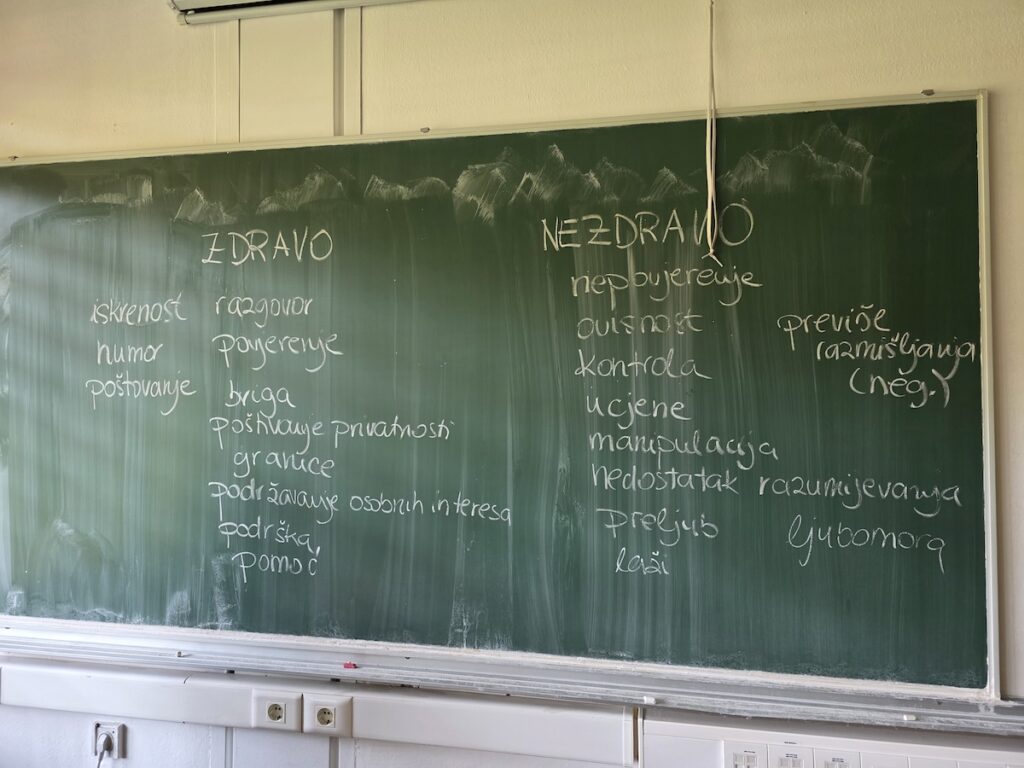 ZDRAVO
iskrenost
humor
poštovanje
razgovor
povjerenje
briga
poštivanje privatnosti
granice
podržavanje osobnih interesa
podrška
pomoć
NEZDRAVO
nepovjerenje
ovisnost
kontrola
ucjene
manipulacija
nedostatak razumijevanja
preljub
laži
previše
razmišljanja
(neg.)
ljubomora